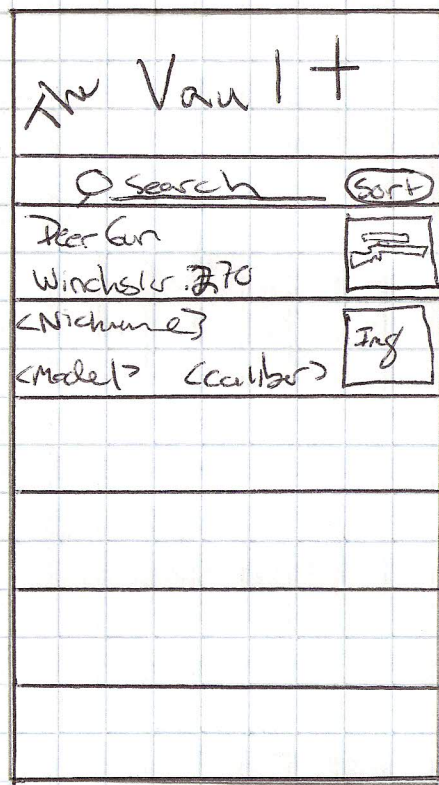 The Vault +
search Sort
Deer Gun
Winchster .270
<Nickname>
<Model> <caliber> Img